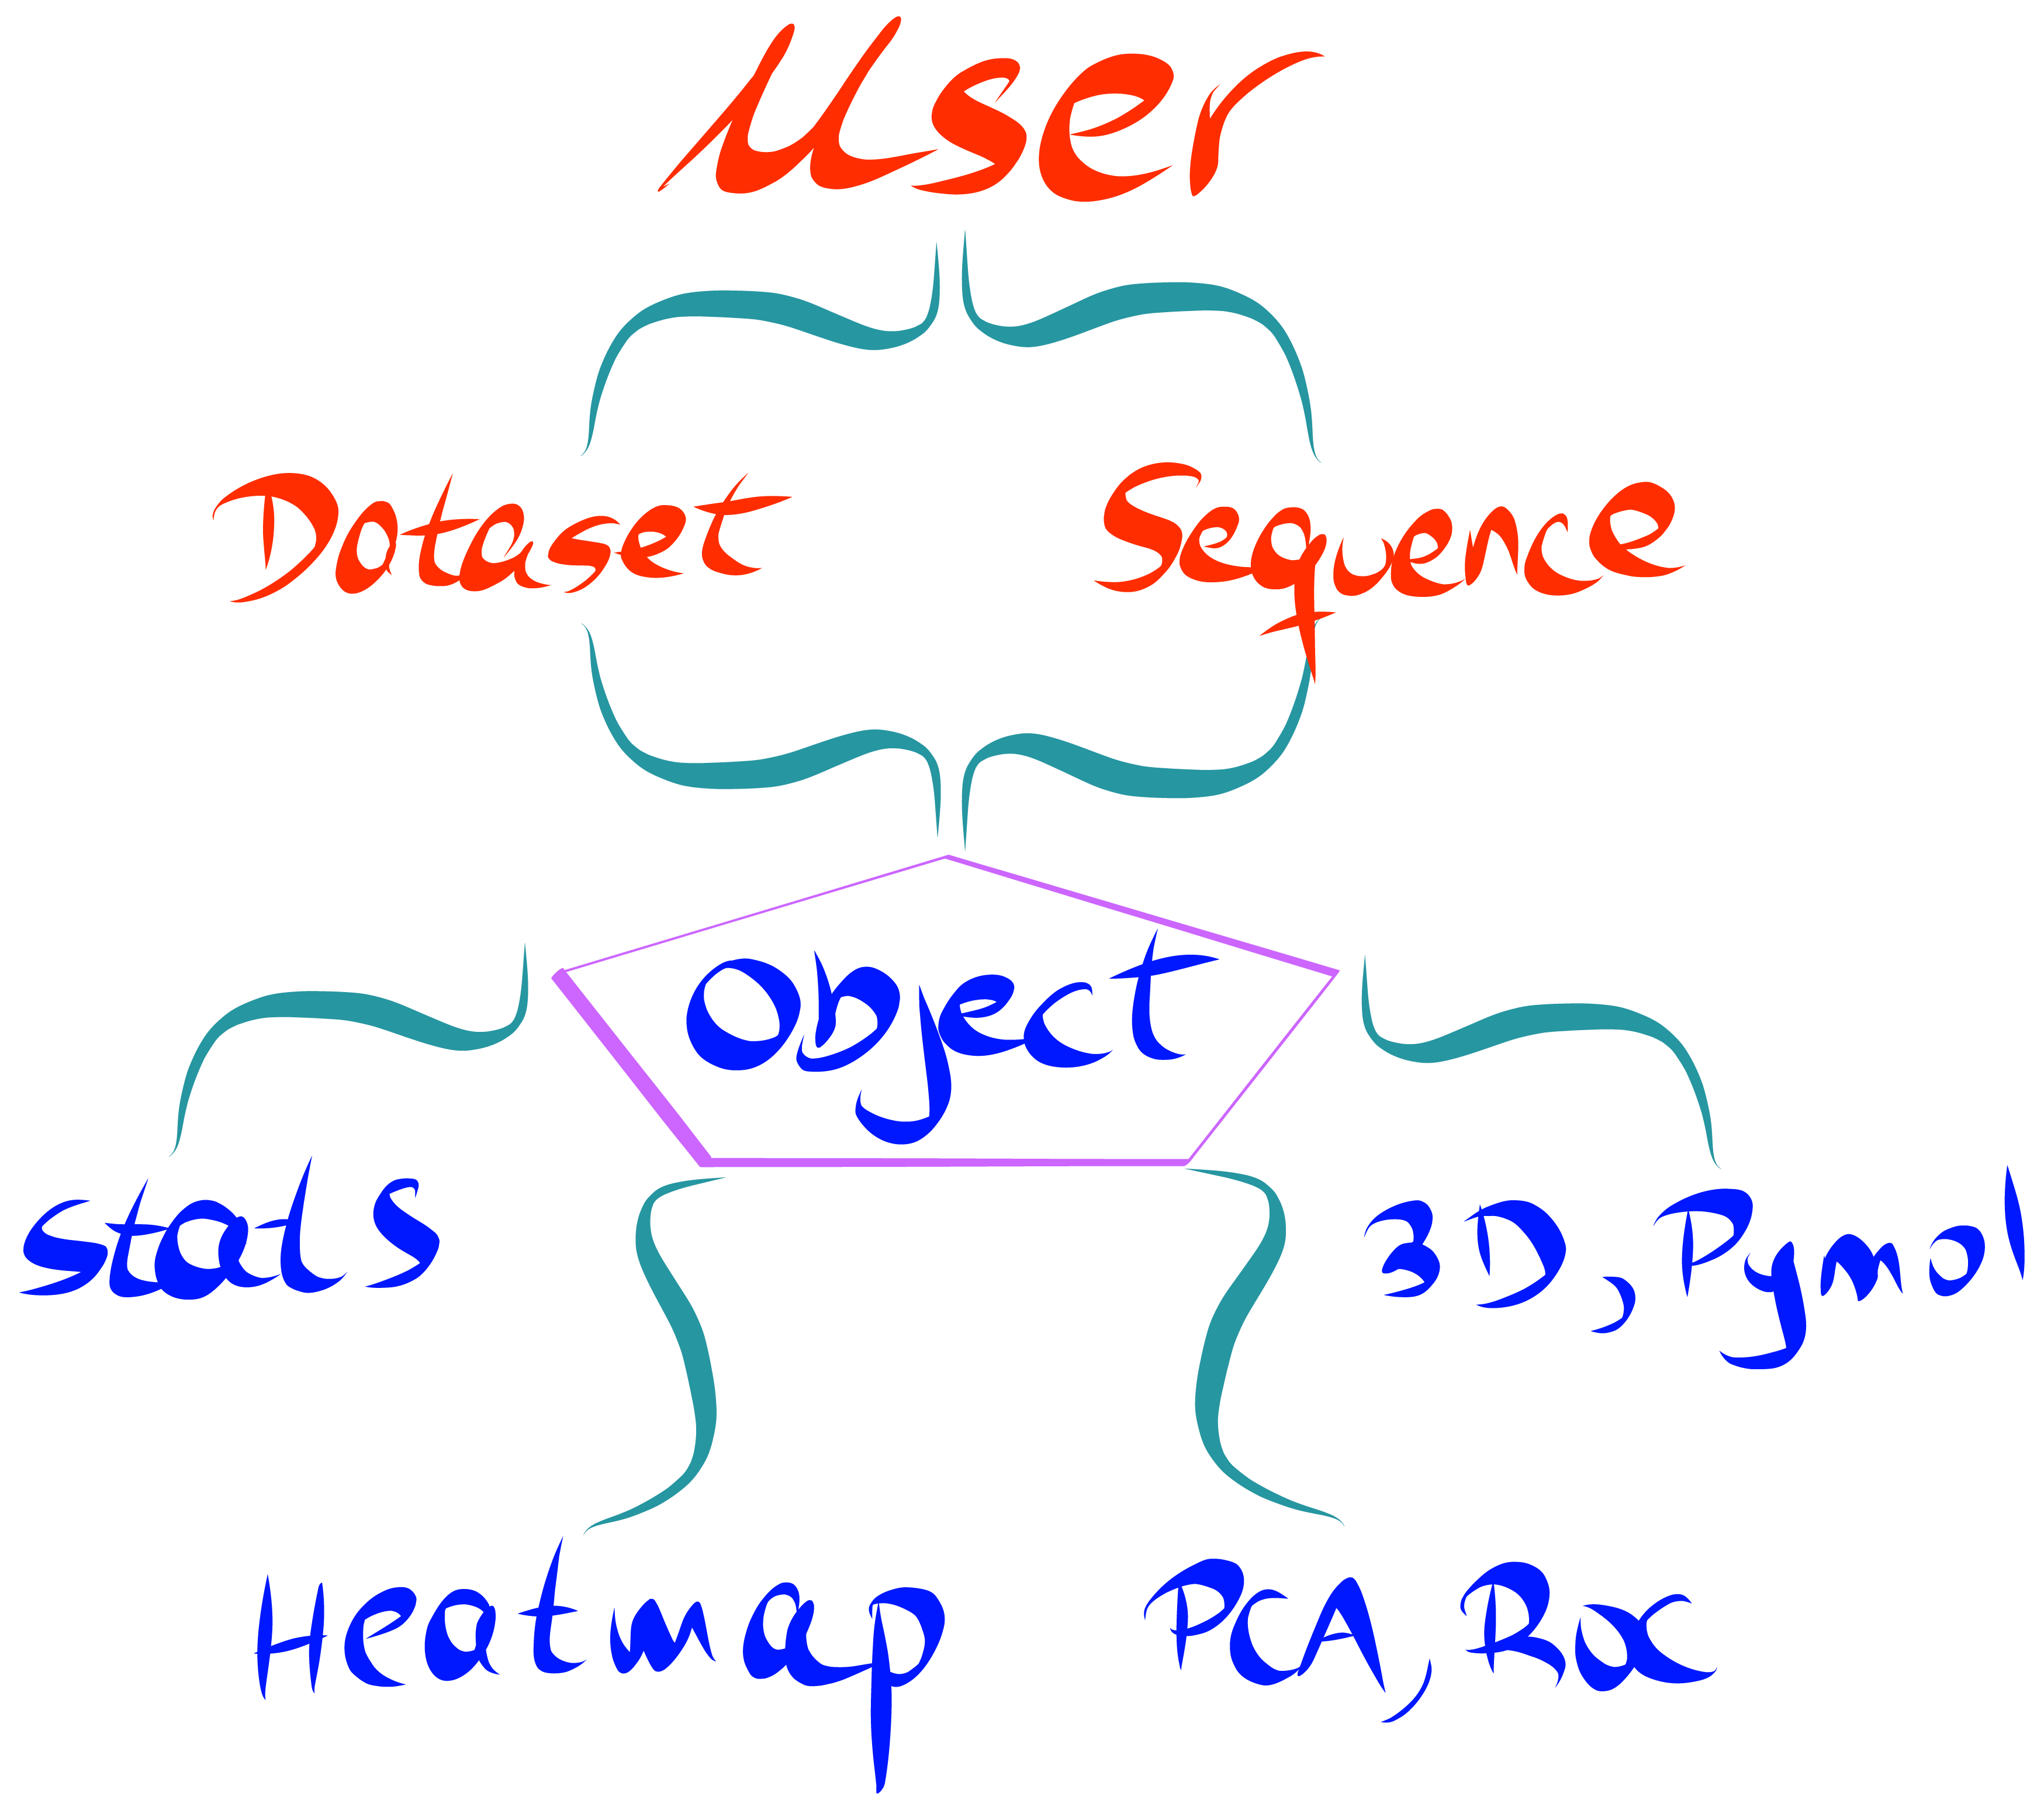 User
Dataset Sequence
Object
Stats 3D, Pymol
Heatmap PCA, Box